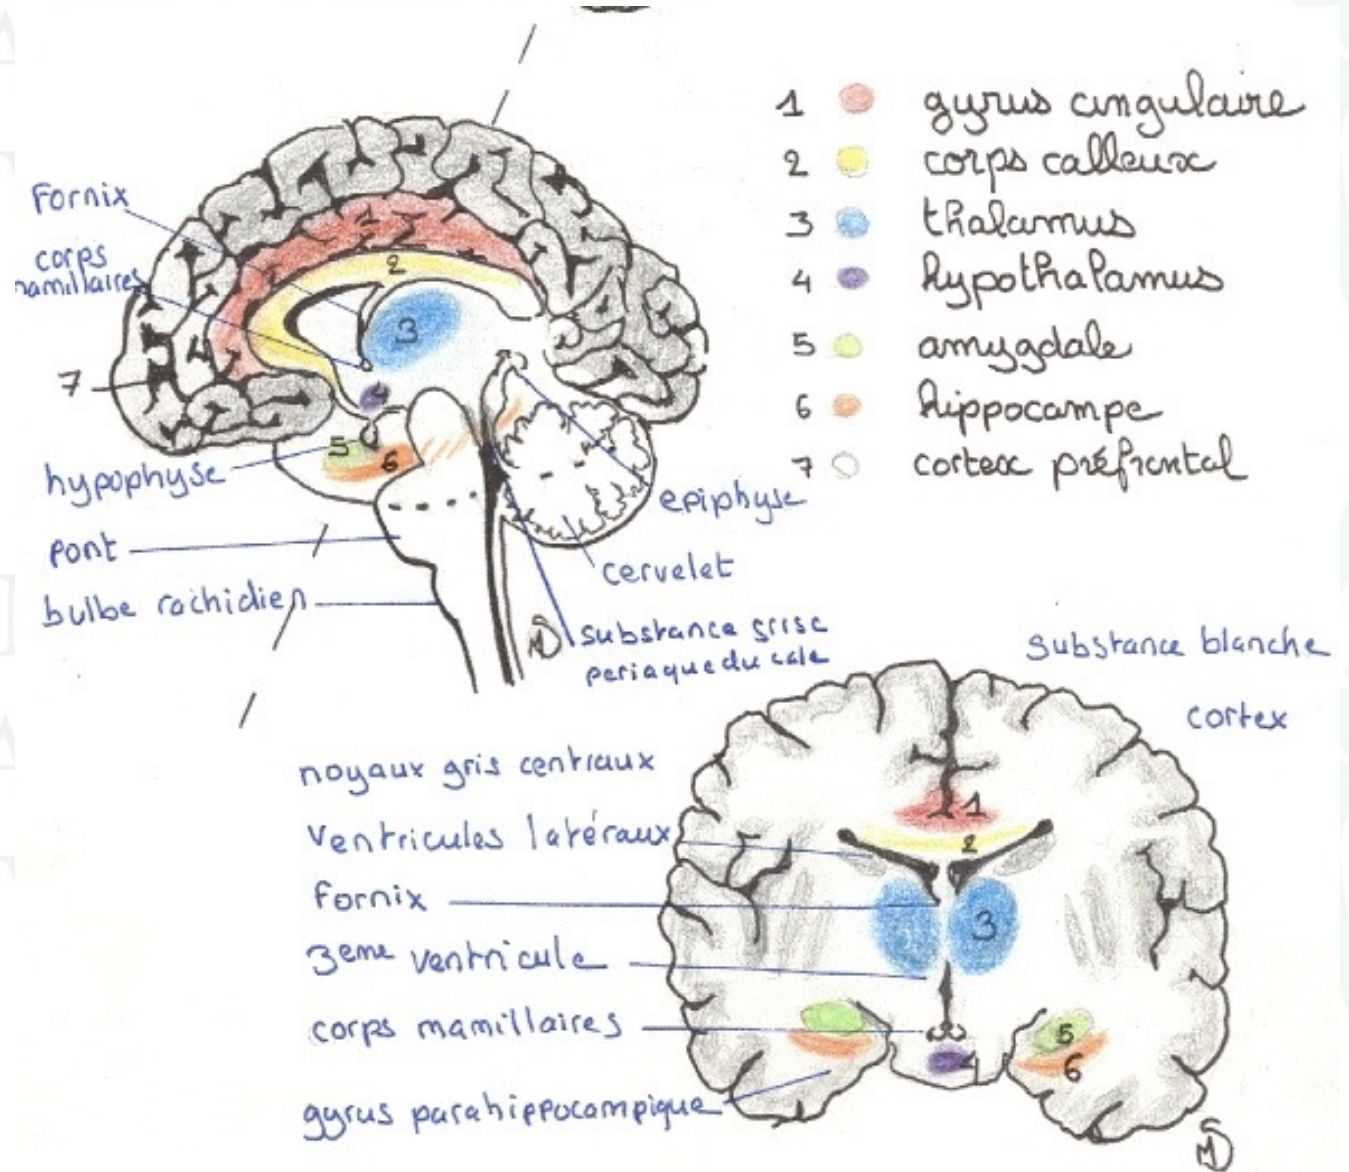 1 gyrus cingulaire
2 corps calleux
3 thalamus
4 hypothalamus
5 amygdale
6 hippocampe
7 cortex préfrontal
Fornix
corps
mamillaires
1
2
3
4
5
6
7
hypophyse
pont
bulbe rachidien
epiphyse
cervelet
substance grise
periaqueducale
substance blanche
cortex
noyaux gris centraux
ventricules latéraux
fornix
3eme ventricule
corps mamillaires
gyrus parahippocampique
1
2
3
4
5
6